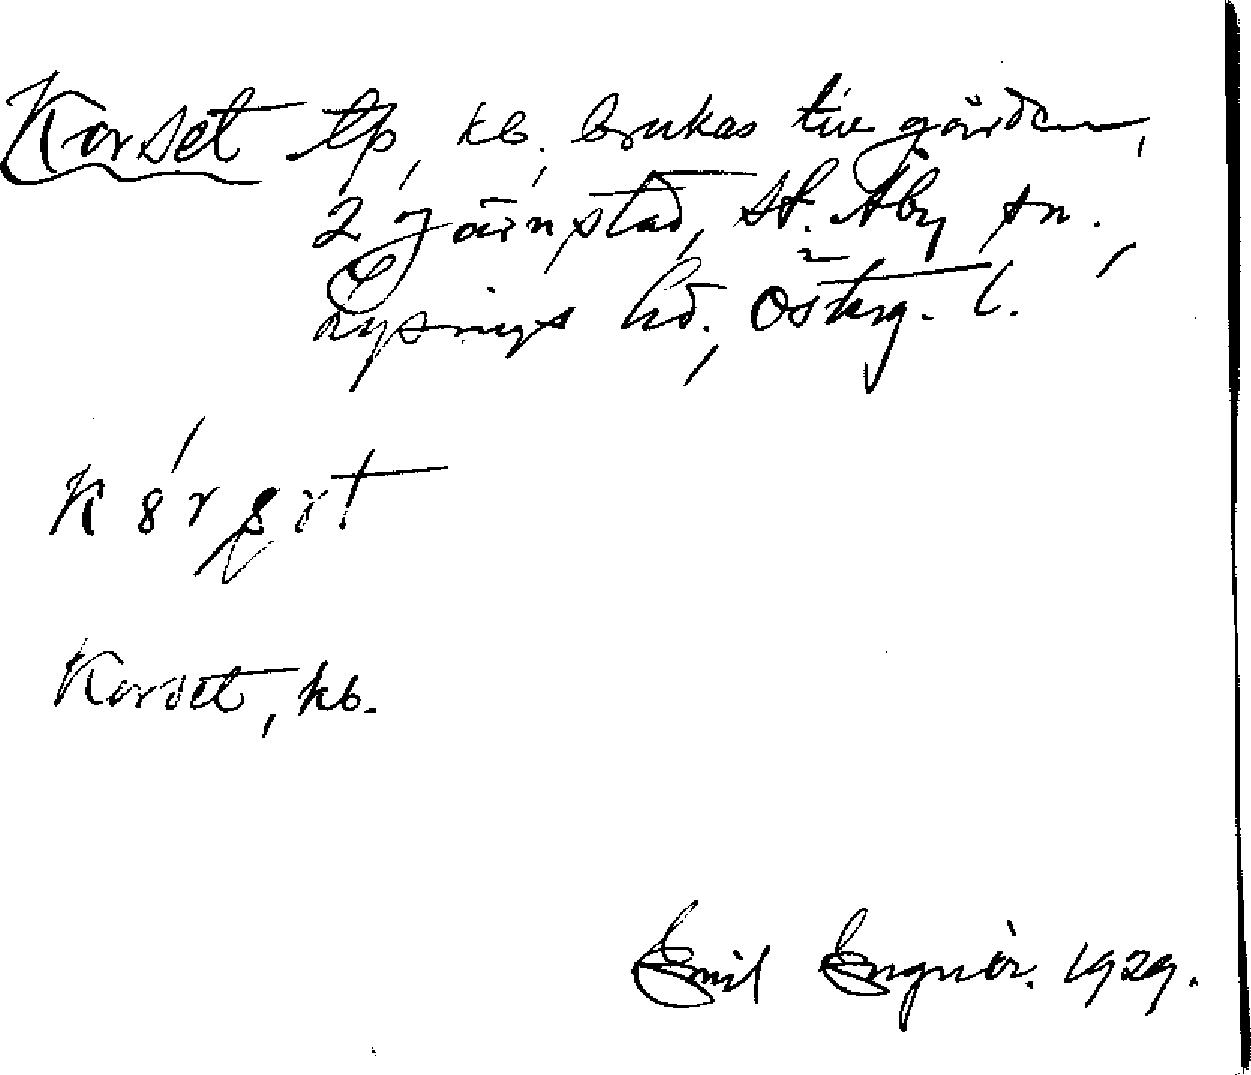 Korset tp, kb. brukas till gården,
2 Järnstad, St. Åby sn.,
Lysings hd., Österg. l.
Korset, kb.
Emil Engnér. 1929.